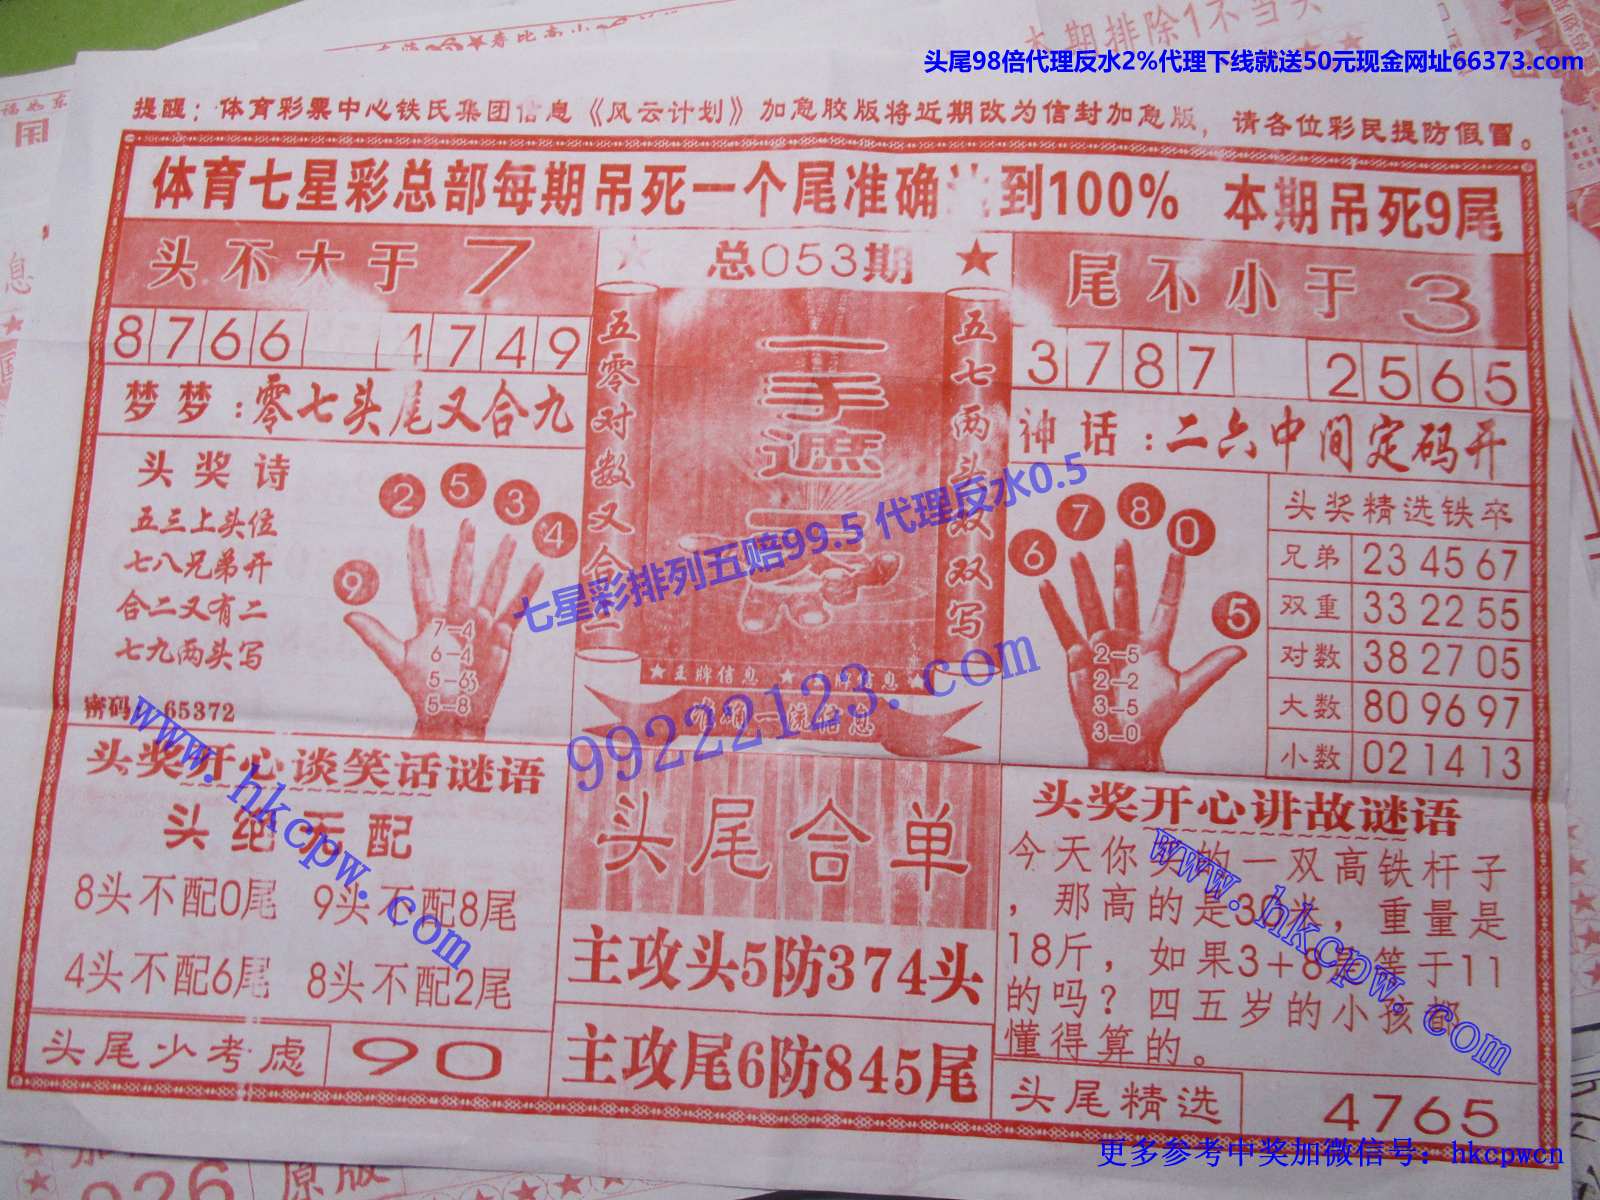 寿比高山
本期排除1不当头
头尾98倍代理反水2%代理下线就送50元现金网址66373.com
提醒：体育彩票中心铁氏集团信息《风云计划》加急胶版将近期改为信封加急版，请各位彩民提防假冒。
体育七星彩总部每期吊死一个尾准确 到100% 本期吊死9尾
头不大于7
总053期
尾不小于3
8766 4749
3787 2565
梦梦：零七头尾又合九
神话：二六中间定码开
五零对数又合二
一手遮天
五七两头双双写
头奖诗
五三上头位
七八兄弟开
合二又有二
七九两头写
密码：65372
9 2 5 3 4
7-4
6-4
5-6
5-8
6 7 8 0 5
2-5
2-2
3-5
3-0
头奖精选铁卒
兄弟 23 45 67
双重 33 22 55
对数 38 27 05
大数 80 96 97
小数 02 14 13
★王牌信息 ★王牌信息★
准确一流信息
七星彩排列五赔99.5 代理反水0.5
99222123.com
www.hkcpw.com
www.hkcpw.com
头奖开心谈笑话谜语
头绝不配
8头不配0尾 9头不配8尾
4头不配6尾 8头不配2尾
头尾少考虑 90
头尾合单
主攻头5防374头
主攻尾6防845尾
头奖开心讲故谜语
今天你 的一双高铁杆子
，那高的是30米，重量是
18斤，如果3+8是等于11
的吗？四五岁的小孩都
懂得算的。
头尾精选 4765
更多参考中奖加微信号：hkcpwcn
926 原版